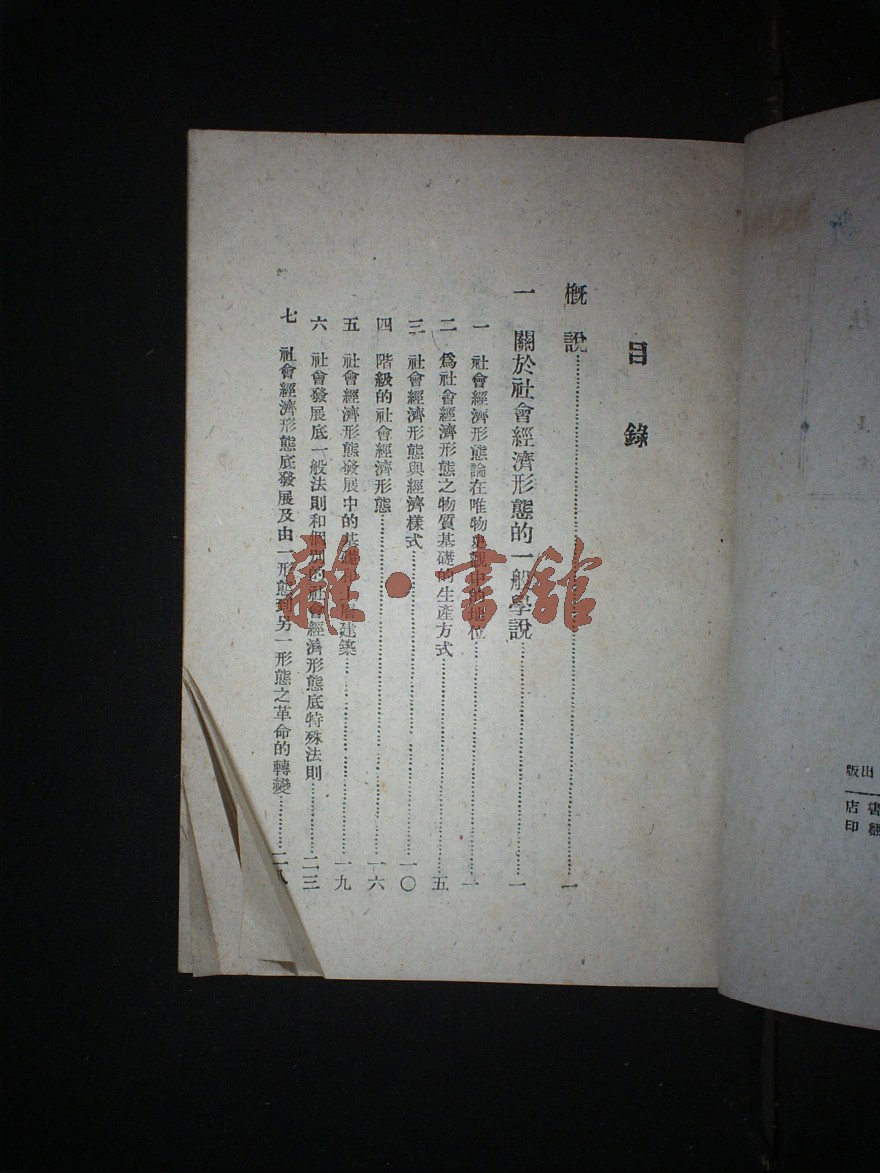 目錄
概說……一
一 關於社會經濟形態的一般學說……一
一 社會經濟形態論在唯物史觀中的地位……一
二 爲社會經濟形態之物質基礎的生產方式……五
三 社會經濟形態與經濟樣式……一〇
四 階級的社會經濟形態……一六
五 社會經濟形態發展中的基礎和上層建築……一九
六 社會發展底一般法則和個別的社會經濟形態底特殊法則……二三
七 社會經濟形態底發展及由一形態到另一形態之革命的轉變……二八
雜·書館
出版
書店
翻印